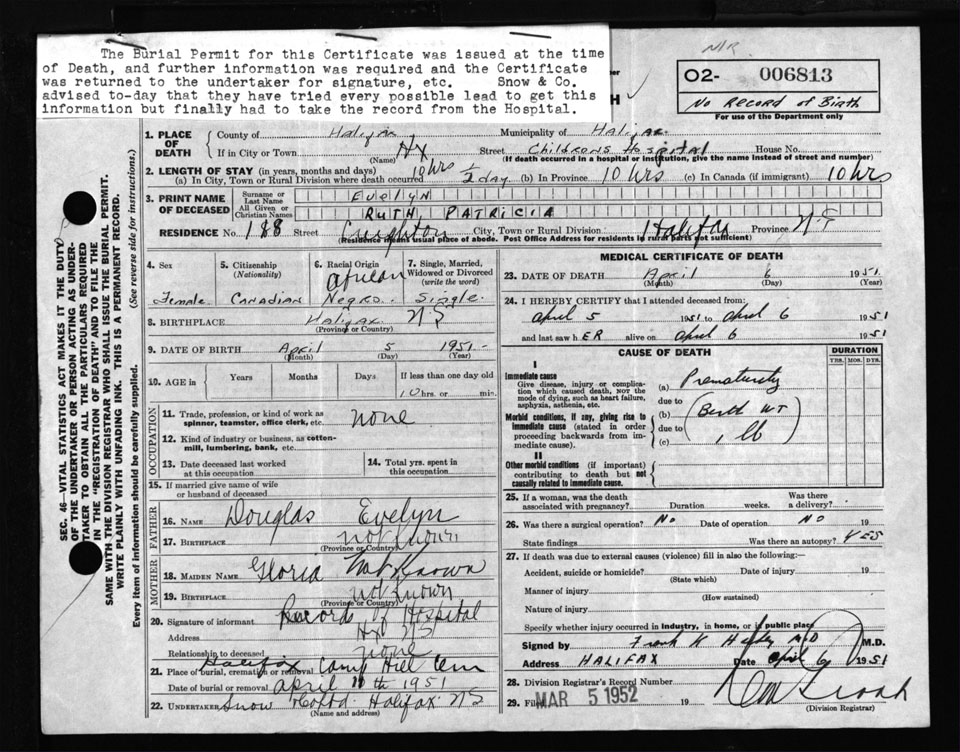 The Burial Permit for this Certificate was issued at the time
of Death, and further information was required and the Certificate
was returned to the undertaker for signature, etc. Snow & Co.
advised to-day that they have tried every possible lead to get this
information but finally had to take the record from the Hospital.
N/R
02- 006813
No RECORD of Birth
For use of the Department only
SEC. 46—VITAL STATISTICS ACT MAKES IT THE DUTY
OF THE UNDERTAKER OR PERSON ACTING AS UNDER-
TAKER TO OBTAIN ALL THE PARTICULARS REQUIRED
IN THE "REGISTRATION OF DEATH" AND TO FILE THE
SAME WITH THE DIVISION REGISTRAR WHO SHALL ISSUE THE BURIAL PERMIT.
WRITE PLAINLY WITH UNFADING INK. THIS IS A PERMANENT RECORD.
Every item of information should be carefully supplied. (See reverse side for instructions.)
1. PLACE OF DEATH
County of Halifax Municipality of Halifax
If in City or Town Hx Street Childrens Hospital House No.
(Name) (If death occurred in a hospital or institution, give the name instead of street and number)
2. LENGTH OF STAY (in years, months and days)
(a) In City, Town or Rural Division where death occurred 10 hrs ½ day (b) In Province 10 hrs (c) In Canada (if immigrant) 10 hrs
3. PRINT NAME OF DECEASED
Surname or Last Name EVELYN
All Given or Christian Names RUTH, PATRICIA
RESIDENCE No. 188 Street Creighton City, Town or Rural Division Halifax Province N S
(Residence means usual place of abode. Post Office Address for residents in rural parts not sufficient)
4. Sex Female
5. Citizenship (Nationality) Canadian
6. Racial Origin African Negro
7. Single, Married, Widowed or Divorced (write the word) Single
8. BIRTHPLACE Halifax NS
(Province or Country)
9. DATE OF BIRTH April 5 1951
(Month) (Day) (Year)
10. AGE in Years Months Days If less than one day old
10 hrs. or min.
OCCUPATION
11. Trade, profession, or kind of work as spinner, teamster, office clerk, etc. none
12. Kind of industry or business, as cotton-mill, lumbering, bank, etc.
13. Date deceased last worked at this occupation
14. Total yrs. spent in this occupation
15. If married give name of wife or husband of deceased
FATHER
16. NAME Douglas Evelyn
17. BIRTHPLACE not known
(Province or Country)
MOTHER
18. MAIDEN NAME Gloria Not Known
19. BIRTHPLACE not known
(Province or Country)
20. Signature of informant Records of Hospital
Address Hx NS
Relationship to deceased none
21. Place of burial, cremation or removal Halifax Camp Hill Cem
Date of burial or removal April 10th 1951
22. UNDERTAKER Snow & Co Ltd. Halifax NS
(Name and address)
MEDICAL CERTIFICATE OF DEATH
23. DATE OF DEATH April 6 1951
(Month) (Day) (Year)
24. I HEREBY CERTIFY that I attended deceased from:
April 5 1951 to April 6 1951
and last saw h ER alive on April 6 1951
CAUSE OF DEATH
DURATION
YRS. MOS. DYS.
I
Immediate cause
Give disease, injury or complication which caused death, NOT the mode of dying, such as heart failure, asphyxia, asthenia, etc.
(a) Prematurity
due to
Morbid conditions, if any, giving rise to immediate cause (stated in order proceeding backwards from immediate cause).
(b) (Birth WT
due to
(c) 1 lb)
II
Other morbid conditions (if important) contributing to death but not causally related to immediate cause.
25. If a woman, was the death associated with pregnancy? Duration weeks. Was there a delivery?
26. Was there a surgical operation? No Date of operation No 19
State findings Was there an autopsy? YES
27. If death was due to external causes (violence) fill in also the following:—
Accident, suicide or homicide? Date of injury 19
(State which)
Manner of injury
(How sustained)
Nature of injury
Specify whether injury occurred in industry, in home, or in public place
Signed by Frank K M D M.D.
Address HALIFAX Date April 6 1951
28. Division Registrar's Record Number
29. Filed MAR 5 1952 19
(Division Registrar)